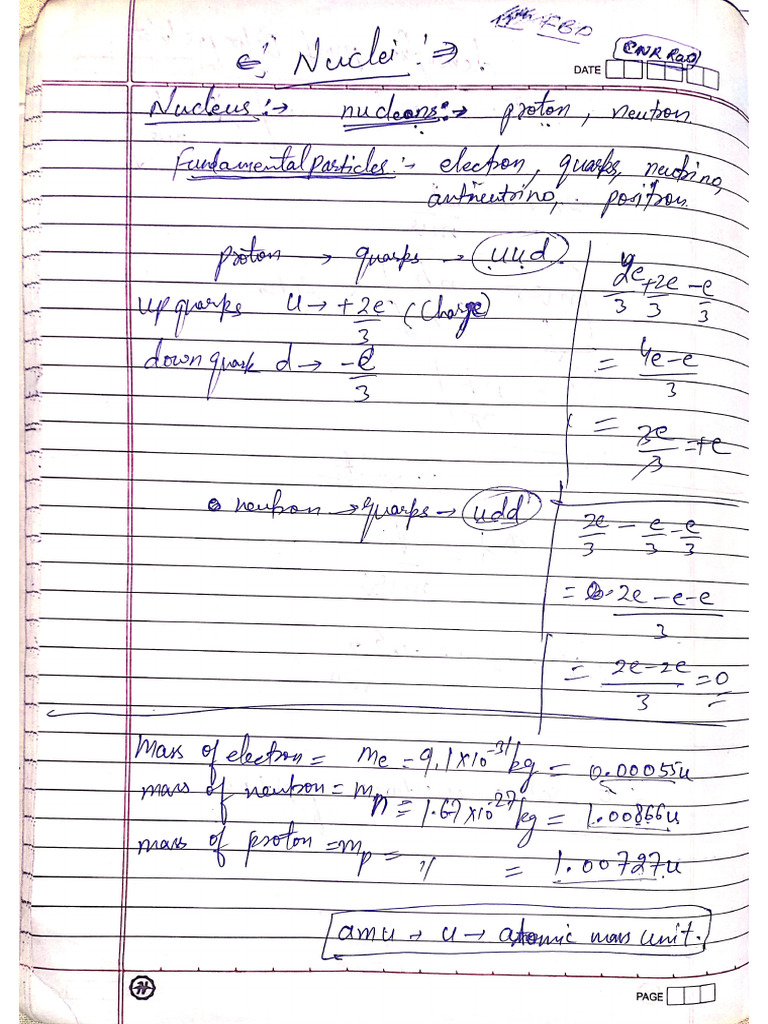 FBD
CNR Rao
DATE
Nuclei :⇒
Nucleus :→ nucleons :→ proton, neutron
Fundamental Particles :- electron, quarks, neutrino,
antineutrino, positron
proton → quarks → uud
2e/3 + 2e/3 - e/3
up quarks u → +2e/3 (Charge)
down quark d → -e/3
= 4e-e/3
= 3e/3 = +e
neutron → quarks → udd
2e/3 - e/3 - e/3
= 2e-e-e/3
= 2e-2e/3 = 0
Mass of electron = me = 9.1×10^-31 kg = 0.00055u
mass of neutron = mn = 1.67×10^-27 kg = 1.00866u
mass of proton = mp = " = 1.00727u
amu → u → atomic mass unit.
N
PAGE